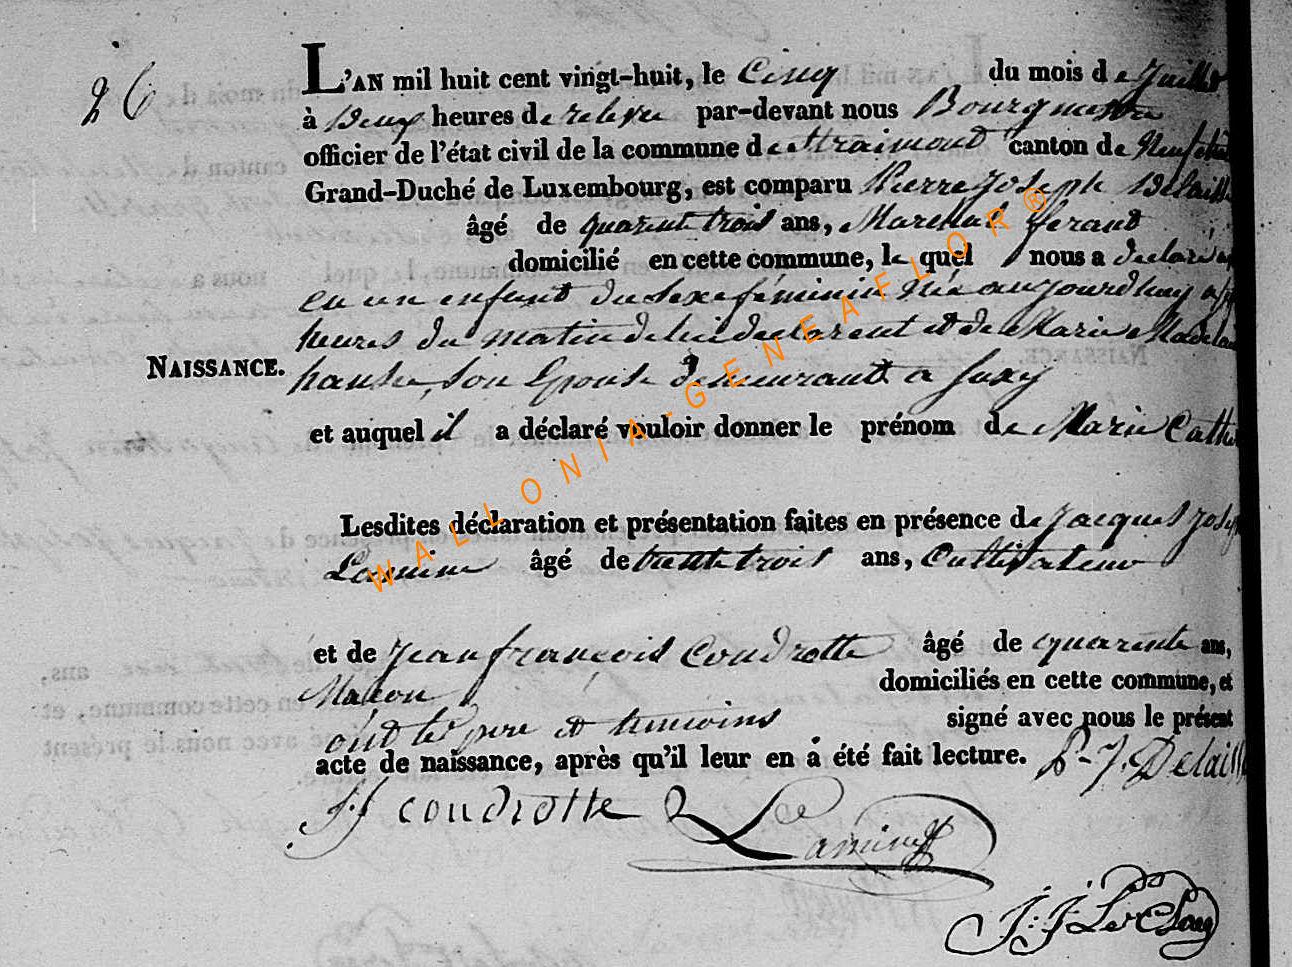 26
L'AN mil huit cent vingt-huit, le Cinq du mois de Juillet
à Deux heures de releve par-devant nous Bourgmestre
officier de l'état civil de la commune de Straimont canton de Neufchâ
Grand-Duché de Luxembourg, est comparu Pierre Joseph Delaill
âgé de quarente trois ans, Marechal ferant
domicilié en cette commune, le quel nous a declaré
eu un enfant du sexe féminin Née aujourdhuy a
heures du matin de lui declarent et de Marie Madelai
NAISSANCE.
son Epouse demeurant a Suxy
et auquel il a déclaré vouloir donner le prénom de Marie Cathe
Lesdites déclaration et présentation faites en présence de Jacques Josep
Lamine âgé de trente trois ans, Cultivateur
et de Jean françois Coudrotte âgé de quarente ans,
Macon domiciliés en cette commune, et
ont les pere et temoins signé avec nous le présent
acte de naissance, après qu'il leur en a été fait lecture. P-J. Delaill
J f coudrotte
Lamine
J: J: Le
WALLONIA-GENEAFLOR®